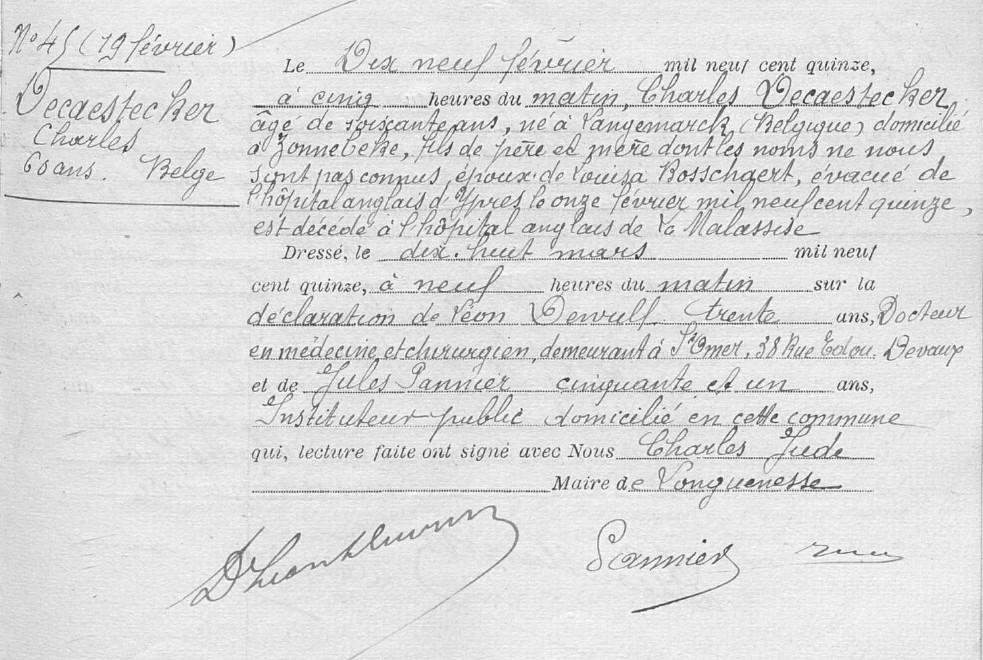 N° 45 (19 février)
Decaestecker
Charles
60 ans. Belge
Le Dix neuf février mil neuf cent quinze,
à cinq heures du matin, Charles Decaestecker
âgé de soixante ans, né à Langemarck (Belgique) domicilié
à Zonnebeke, fils de père et mère dont les noms ne nous
sont pas connus, époux de Louisa Bosschaert, évacué de
l'hôpital anglais d'Ypres le onze février mil neuf cent quinze,
est décédé à l'hôpital anglais de La Malassise
Dressé, le dix-huit mars mil neuf
cent quinze, à neuf heures du matin sur la
déclaration de Léon Dewulf trente ans, Docteur
en médecine, et chirurgien, demeurant à St Omer, 38 Rue Edou. Devaux
et de Jules Pannier cinquante et un ans,
Instituteur public domicilié en cette commune
qui, lecture faite ont signé avec Nous Charles Jude
Maire de Longuenesse
Pannier